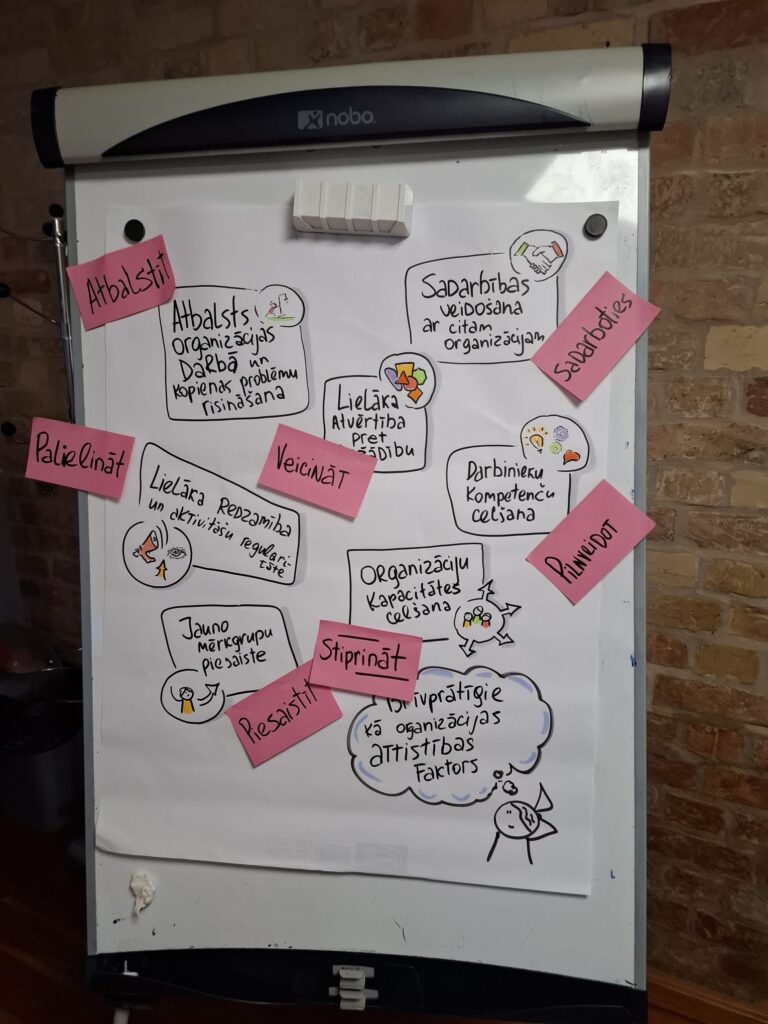 nobo
Atbalstīt
Atbalsts
organizācijas
Darbā un
kopienas problēmu
risināšana
Sadarbības
veidošana
ar citām
organizācijām
Sadarboties
Lielāka
Atvērtība
pret
Veicināt
Palielināt
Lielāka Redzamība
un aktivitāšu regulari-
tāte
Darbinieku
Kompetenču
celšana
Pilnveidot
Organizāciju
Kapacitātes
celšana
Jauno
mērķgrupu
piesaiste
Stiprināt
Piesaistīt
Brīvprātīgie
kā organizācijas
attīstības
Faktors